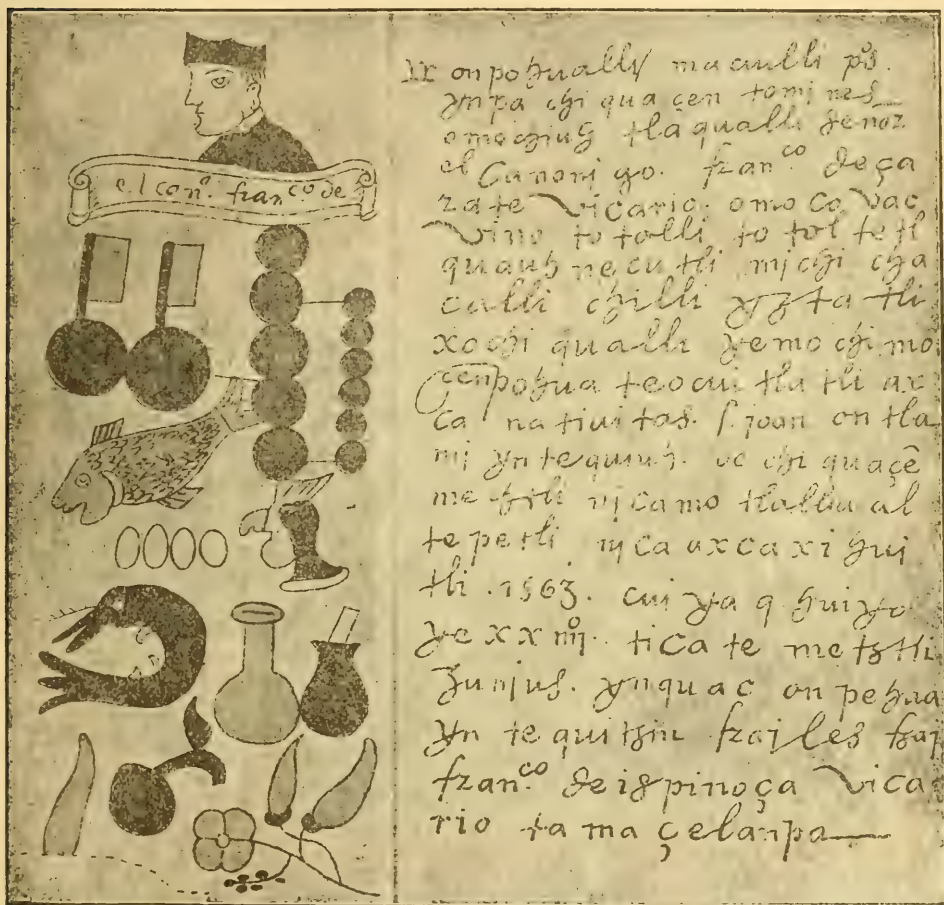 el con.º fran.co de
onpohualli macuilli p̃s.
ynpa chi qua cen tomines
omochiuh tlaqualli señor
el Canonigo. fran.co de ça
zate Vicario. omo co vac
Vino totolli totoltetl
quauh necutli michi cha
calli chilli yztatli
xochi qualli yemochi mo
cenpohua teocuitlatli ax
ca natiuitas. S. joan on tla
mj yn tequiuh. ve chi quacẽ
metztli nican altepetl
tepetli nica axcaxihui
tli .1563. cuiya q huiyo
ye xx iiijº. ticate metztli
Junius. ynquac onpehua
yn te quitzin frajles fraj
fran.co de ispinoça Vica
rio tamaçelanpa